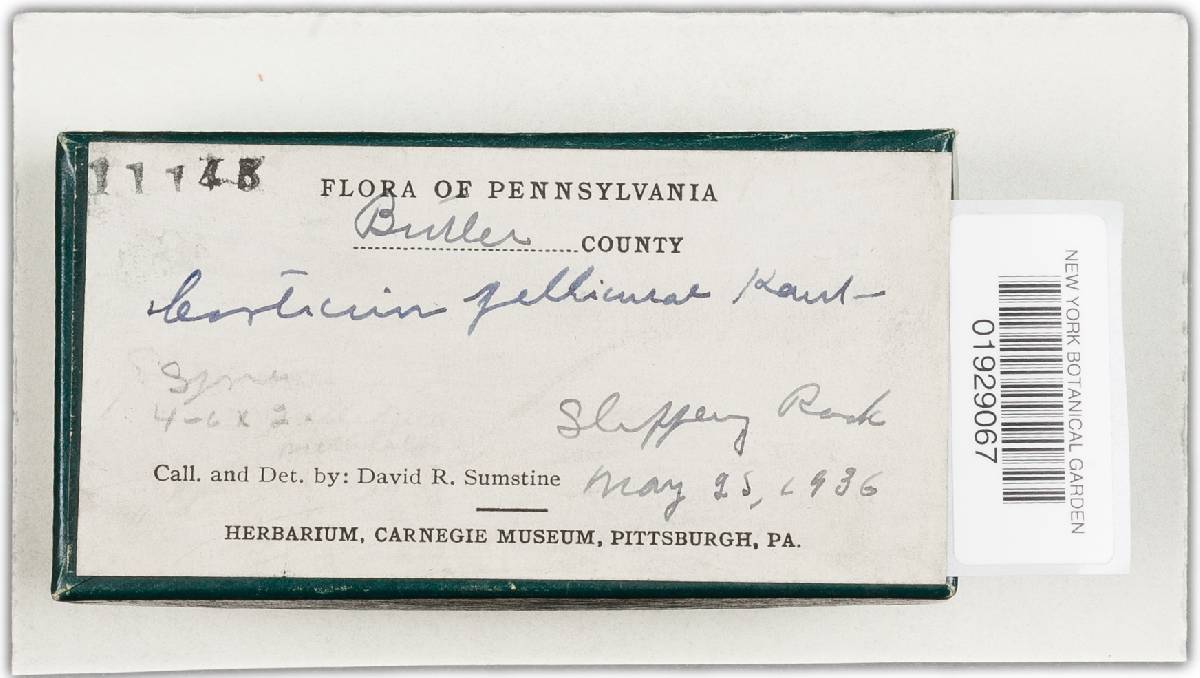 FLORA OF PENNSYLVANIA
Butler COUNTY
Corticium
Spores
4-6 x 2
Slippery Rock
Call. and Det. by: David R. Sumstine May 25, 1936
HERBARIUM, CARNEGIE MUSEUM, PITTSBURGH, PA.
NEW YORK BOTANICAL GARDEN
01929067